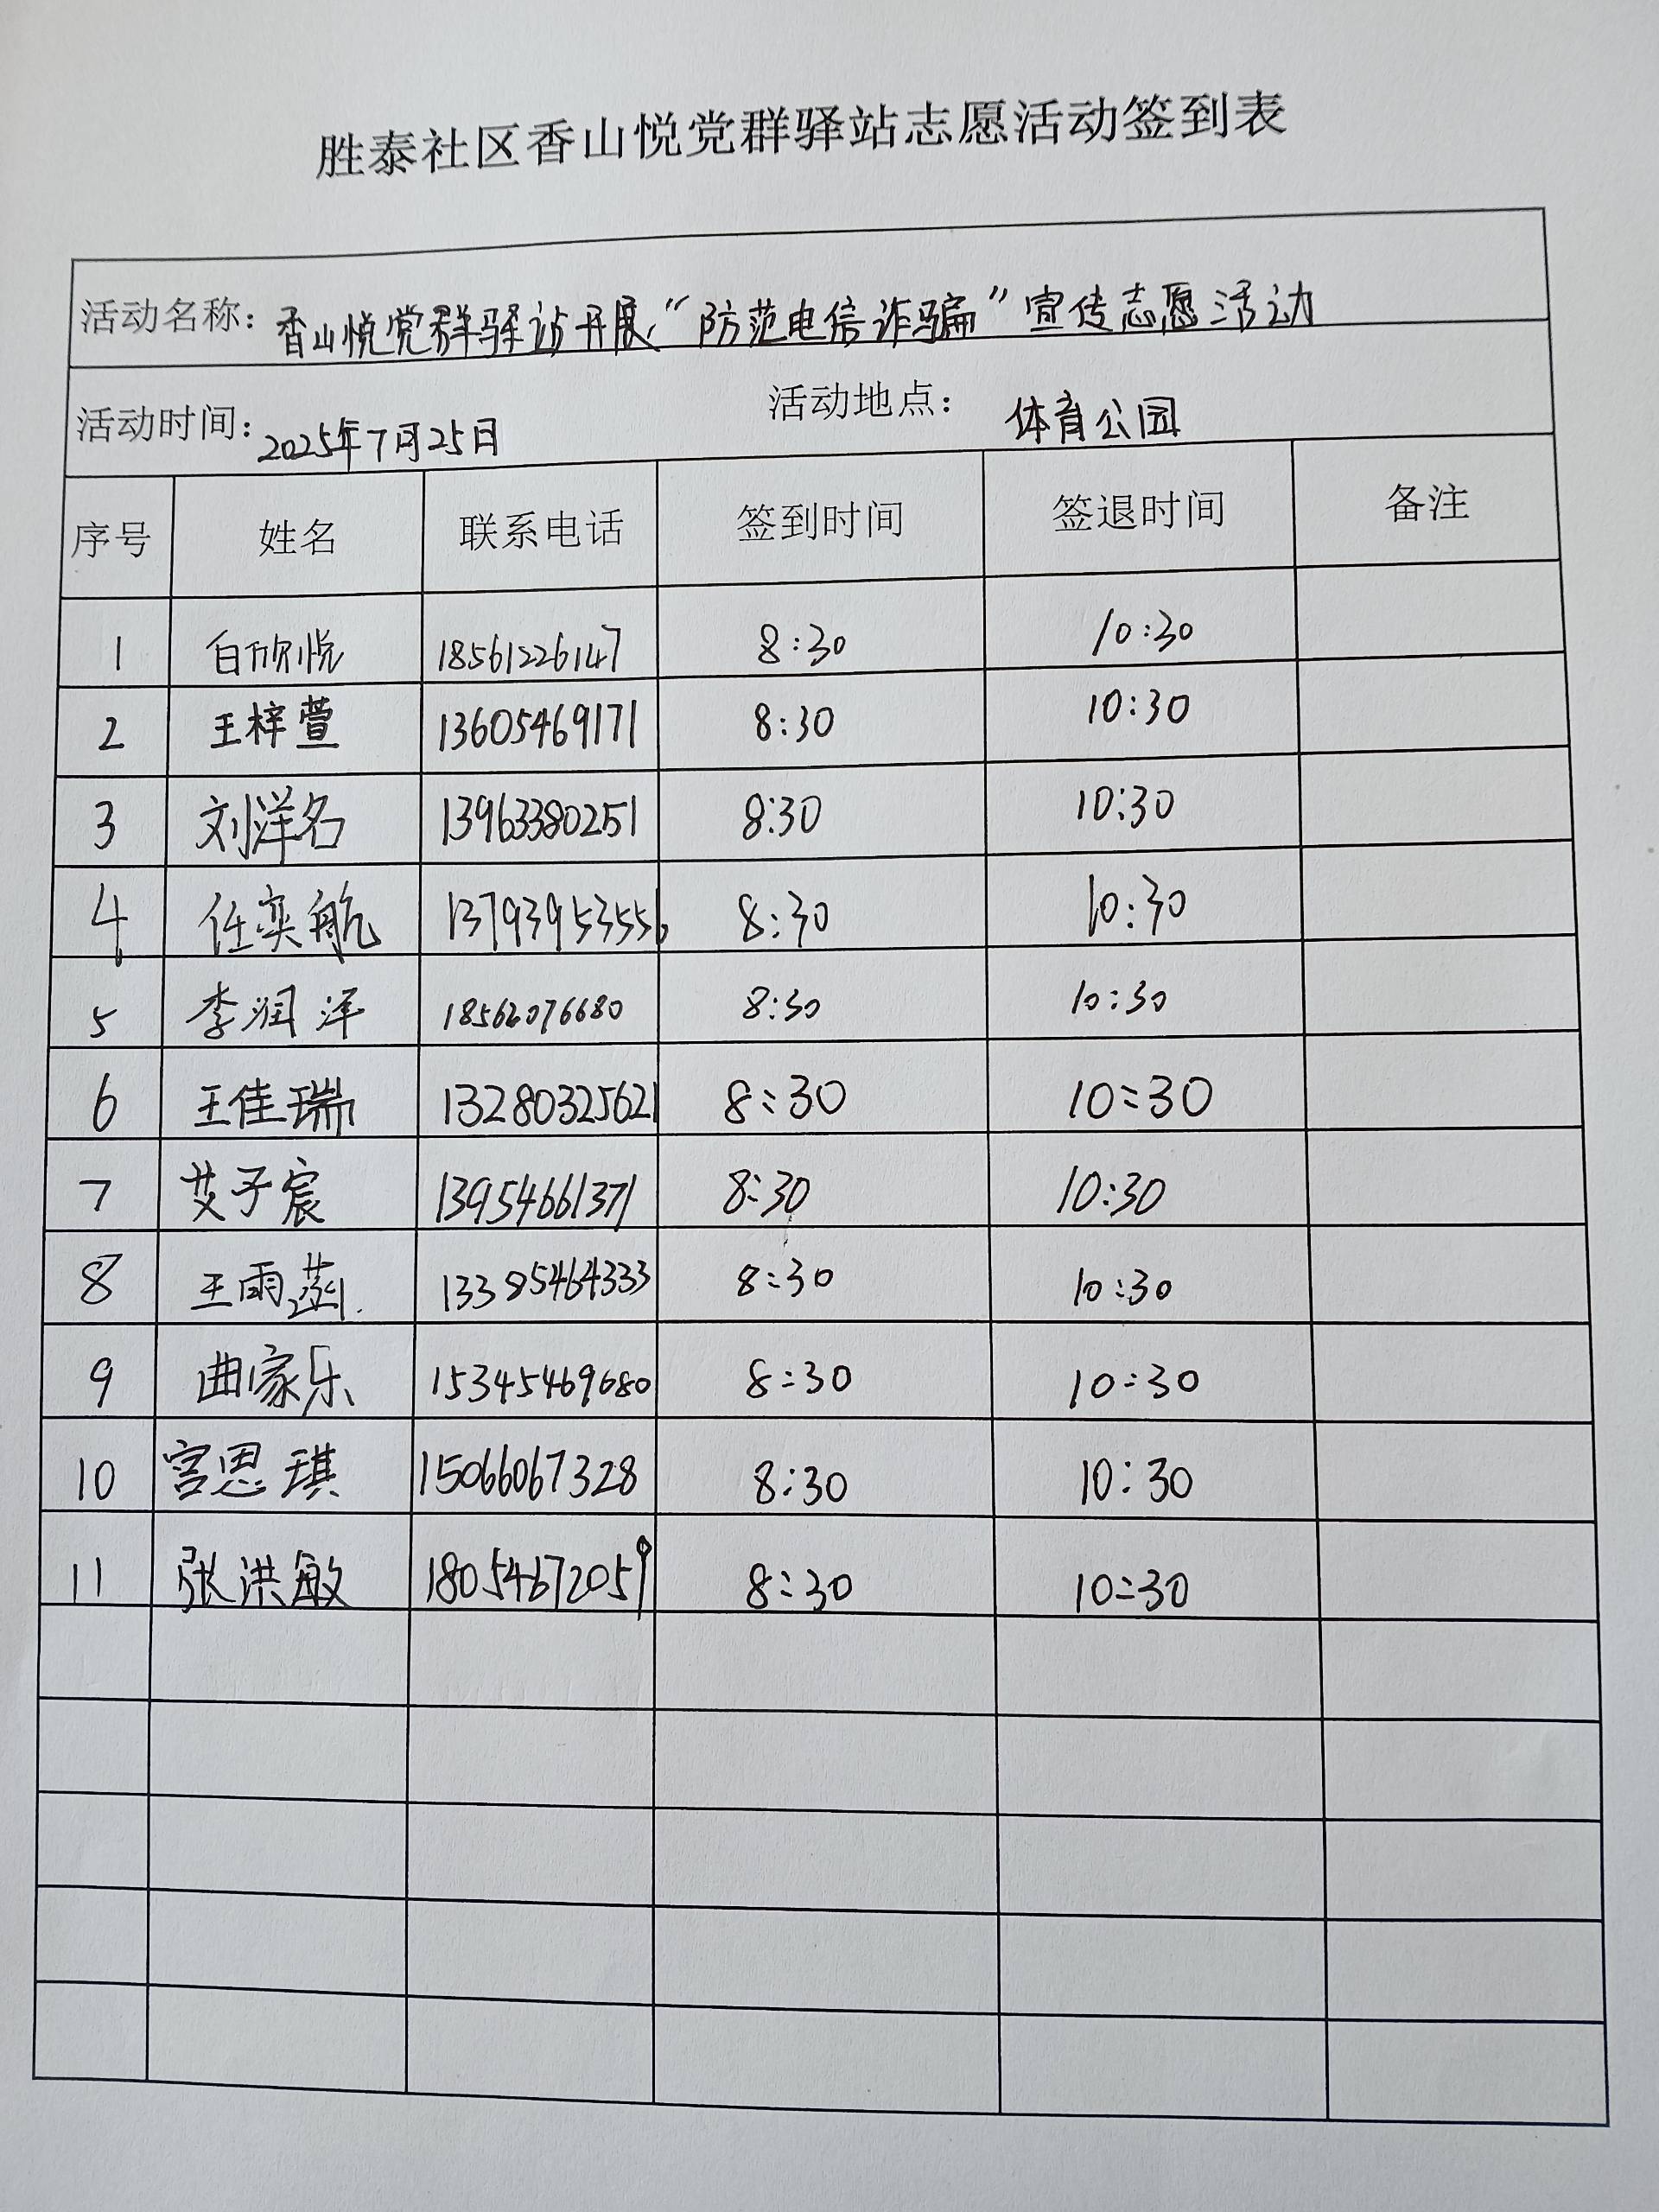 胜泰社区香山悦党群驿站志愿活动签到表
活动名称：香山悦党群驿站开展“防范电信诈骗”宣传志愿活动
活动时间：2025年7月25日 活动地点：体育公园
序号 姓名 联系电话 签到时间 签退时间 备注
1 白欣悦 18561226147 8:30 10:30
2 王梓萱 13605469171 8:30 10:30
3 刘洋名 13963380251 8:30 10:30
4 任奕航 13793953556 8:30 10:30
5 李润泽 18562076680 8:30 10:30
6 王佳瑞 13280325621 8:30 10:30
7 艾子宸 13954661371 8:30 10:30
8 王雨涵 13385464333 8:30 10:30
9 曲家乐 15345469680 8:30 10:30
10 宫思琪 15066067328 8:30 10:30
11 张洪敏 18054672059 8:30 10:30